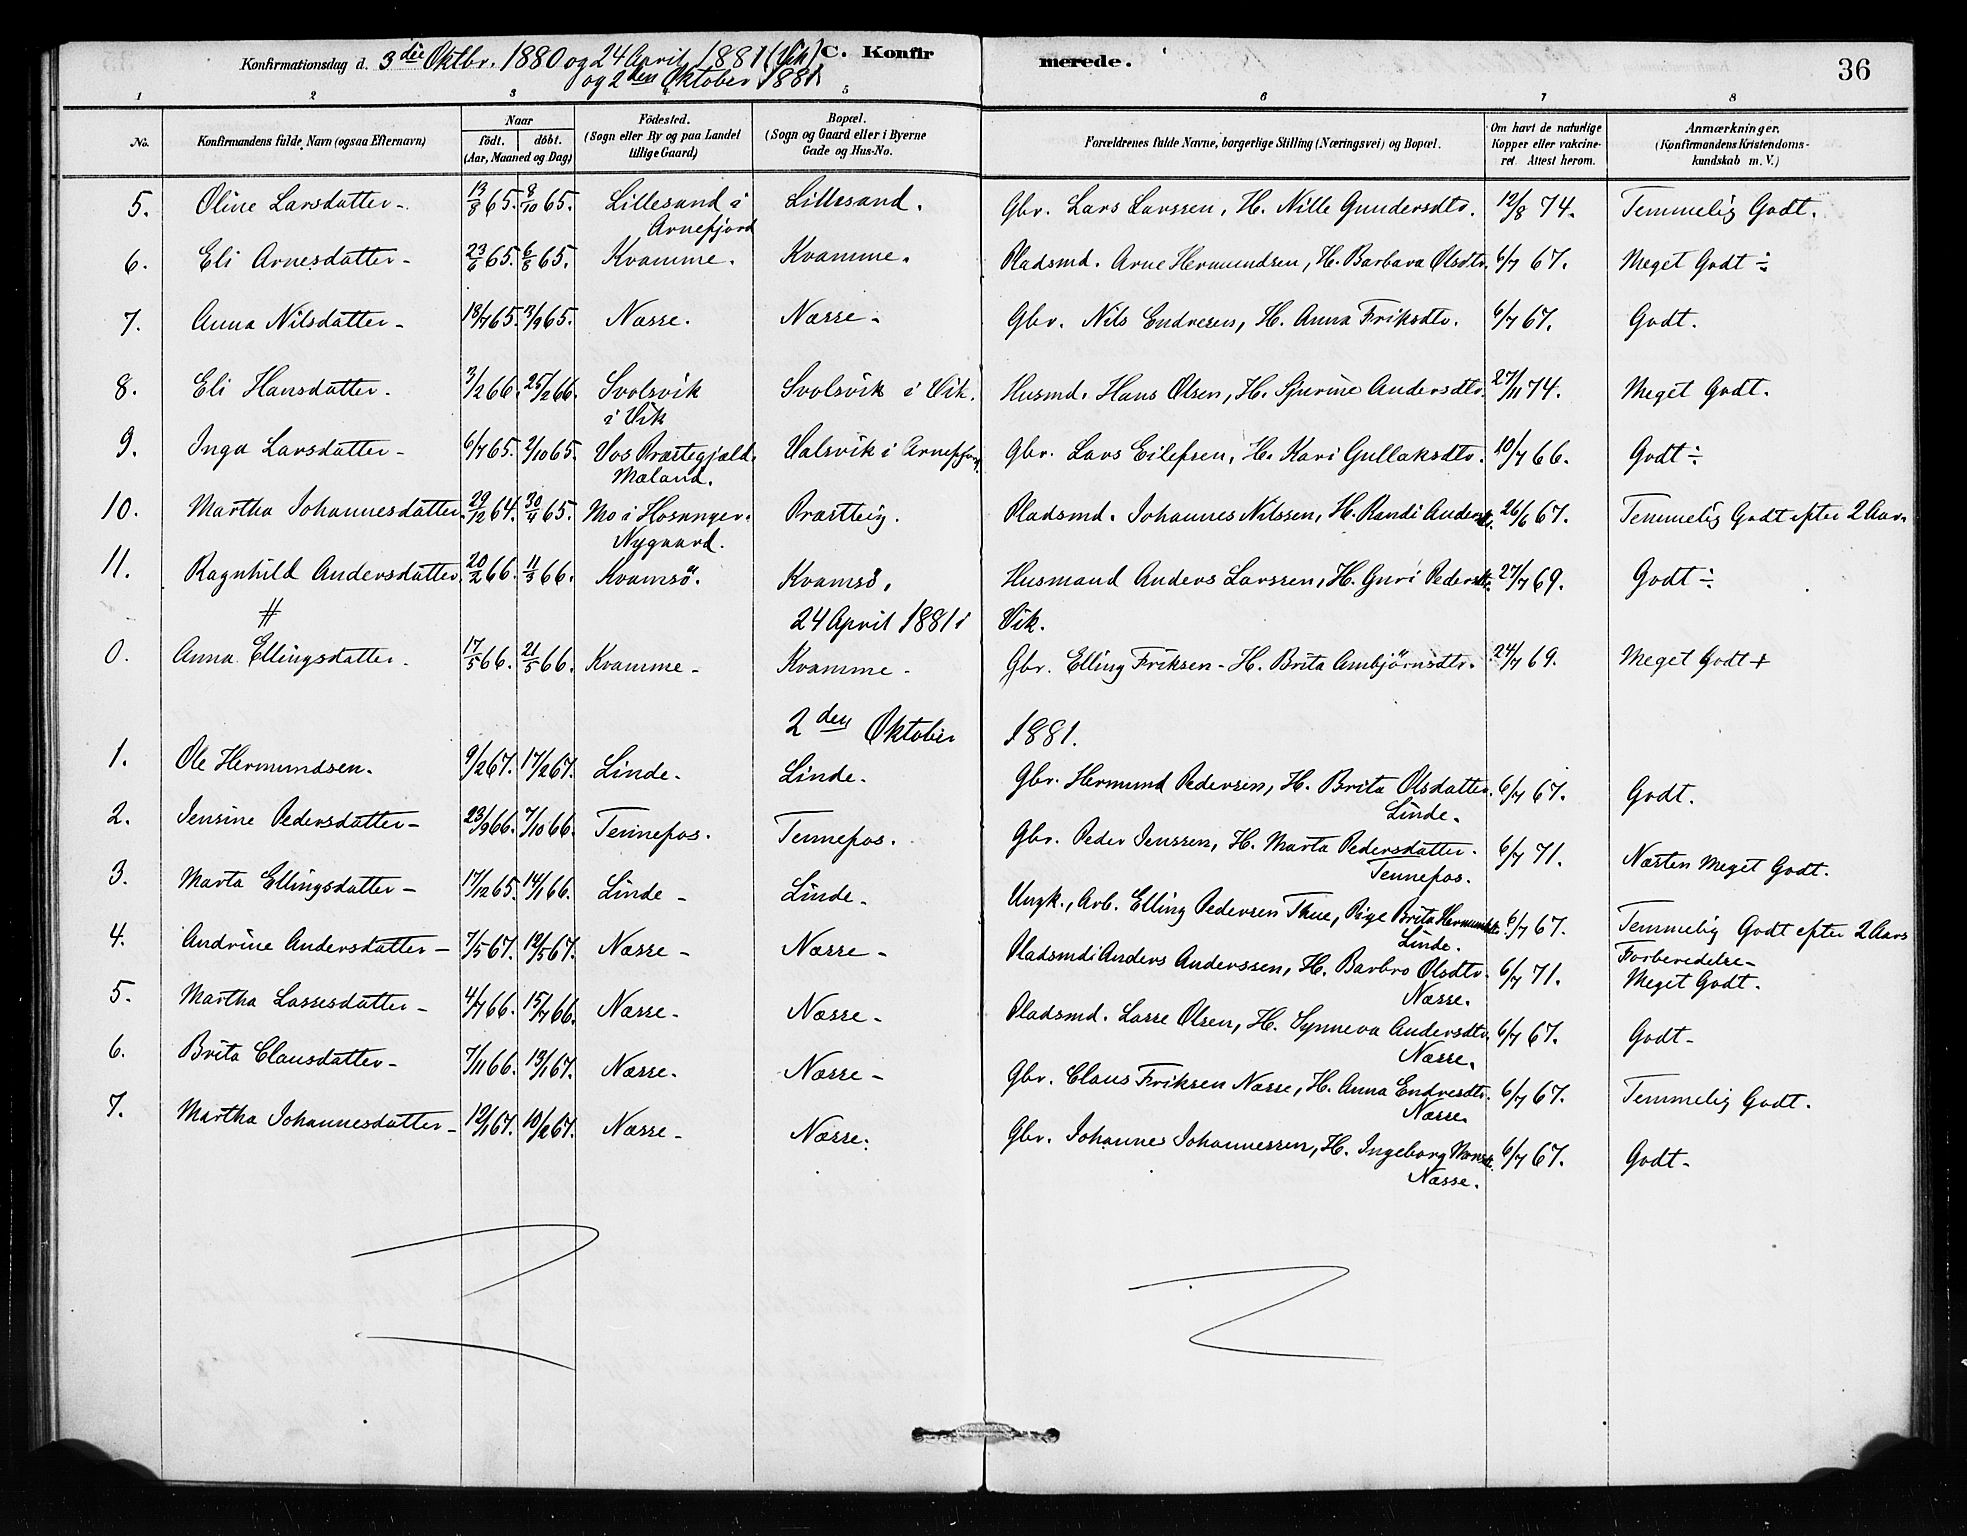 Konfirmationsdag d. 3die Oktbr. 1880 og 24 April 1881 (Vik) C. Konfirmerede. 36
og 2den Oktober 1881.
1 2 3 4 5 6 7 8
No. Konfirmandens fulde Navn (ogsaa Efternavn) Naar født. døbt. (Aar, Maaned og Dag) Fødested. (Sogn eller By og paa Landet tillige Gaard) Bopæl. (Sogn og Gaard eller i Byerne Gade og Hus-No. Forældrenes fulde Navne, borgerlige Stilling (Næringsvei) og Bopæl. Om havt de naturlige Kopper eller vakcineret. Attest herom. Anmærkninger. (Konfirmandens Kristendomskundskab m. V.)
5. Oline Larsdatter - 13/8 65. 8/10 65. Lillesand i Arnefjord Lillesand. Gbr. Lars Larssen, H. Nille Gundersdtr. 12/8 74. Temmelig Godt.
6. Eli Arnesdatter - 23/6 65. 6/8 65. Kvamme. Kvamme. Pladsmd. Arne Hermundsen, H. Barbara Olsdtr. 6/7 67. Meget Godt ÷
7. Anna Nilsdatter - 18/7 65. 3/9 65. Næsse. Næsse - Gbr. Nils Endresen, H. Anna Friksdtr. 6/7 67. Godt.
8. Eli Hansdatter. 3/2 66. 25/2 66. Svolsvik i Vik Svolsvik i Vik. Husmd. Hans Olsen, H. Sjurine Andersdtr. 27/11 74. Meget Godt.
9. Inga Larsdatter - 6/7 65. 2/10 65. Vos Præstegjæld. Mæland. Valsvik i Arnefjord. Gbr. Lars Eilefsen, H. Kari Gullaksdtr. 10/7 66. Godt ÷
10. Martha Johannesdatter 29/12 64. 30/4 65. Mo i Hosanger. Nygaard. Præstteig. Pladsmd. Johannes Nilssen, H. Randi Andersdtr. 26/6 67. Temmelig Godt efter 2 Aar.
11. Ragnhild Andersdatter. 20/2 66. 11/3 66. Kvamsö. Kvamsö. Husmand Anders Larssen, H. Guri Pedersdtr. 27/7 69. Godt ÷
# 24 April 1881 i Vik.
0. Anna Ellingsdatter. 17/5 66. 21/5 66. Kvamme - Kvamme - Gbr. Elling Friksen - H. Brita Ambjørnsdtr. 24/7 69. Meget Godt +
2den Oktober 1881.
1. Ole Hermundsen. 9/2 67. 17/2 67. Linde - Linde. Gbr. Hermund Pedersen, H. Brita Olsdatter. Linde. 6/7 67. Godt.
2. Jensine Pedersdatter - 23/9 66. 7/10 66. Tennefos. Tennefos. Gbr. Peder Jenssen, H. Marta Pedersdatter. Tennefos. 6/7 71. Næsten Meget Godt.
3. Marta Ellingsdatter - 17/12 65. 14/1 66. Linde - Linde - Ungk., Arb. Elling Pedersen Thue, Pige Brita Hermundsdtr. Linde. 6/7 67. Temmelig Godt efter 2 Aars Forberedelse -
4. Andrine Andersdatter - 7/5 67. 12/5 67. Næsse - Næsse - Pladsmd. Anders Anderssen, H. Barbro Olsdtr. Næsse. 6/7 71. Meget Godt.
5. Martha Lassesdatter - 4/7 66. 15/7 66. Næsse - Næsse - Pladsmd. Lasse Olsen, H. Synneva Andersdtr. Næsse. 6/7 67. Godt -
6. Brita Clausdatter - 7/11 66. 13/1 67. Næsse. Næsse - Gbr. Claus Friksen Næsse, H. Anna Endresdtr. Næsse. 6/7 67. Temmelig Godt.
7. Martha Johannesdatter - 12/1 67. 10/2 67. Næsse - Næsse. Gbr. Johannes Johannessen, H. Ingeborg Monsdtr. Næsse. 6/7 67. Godt -